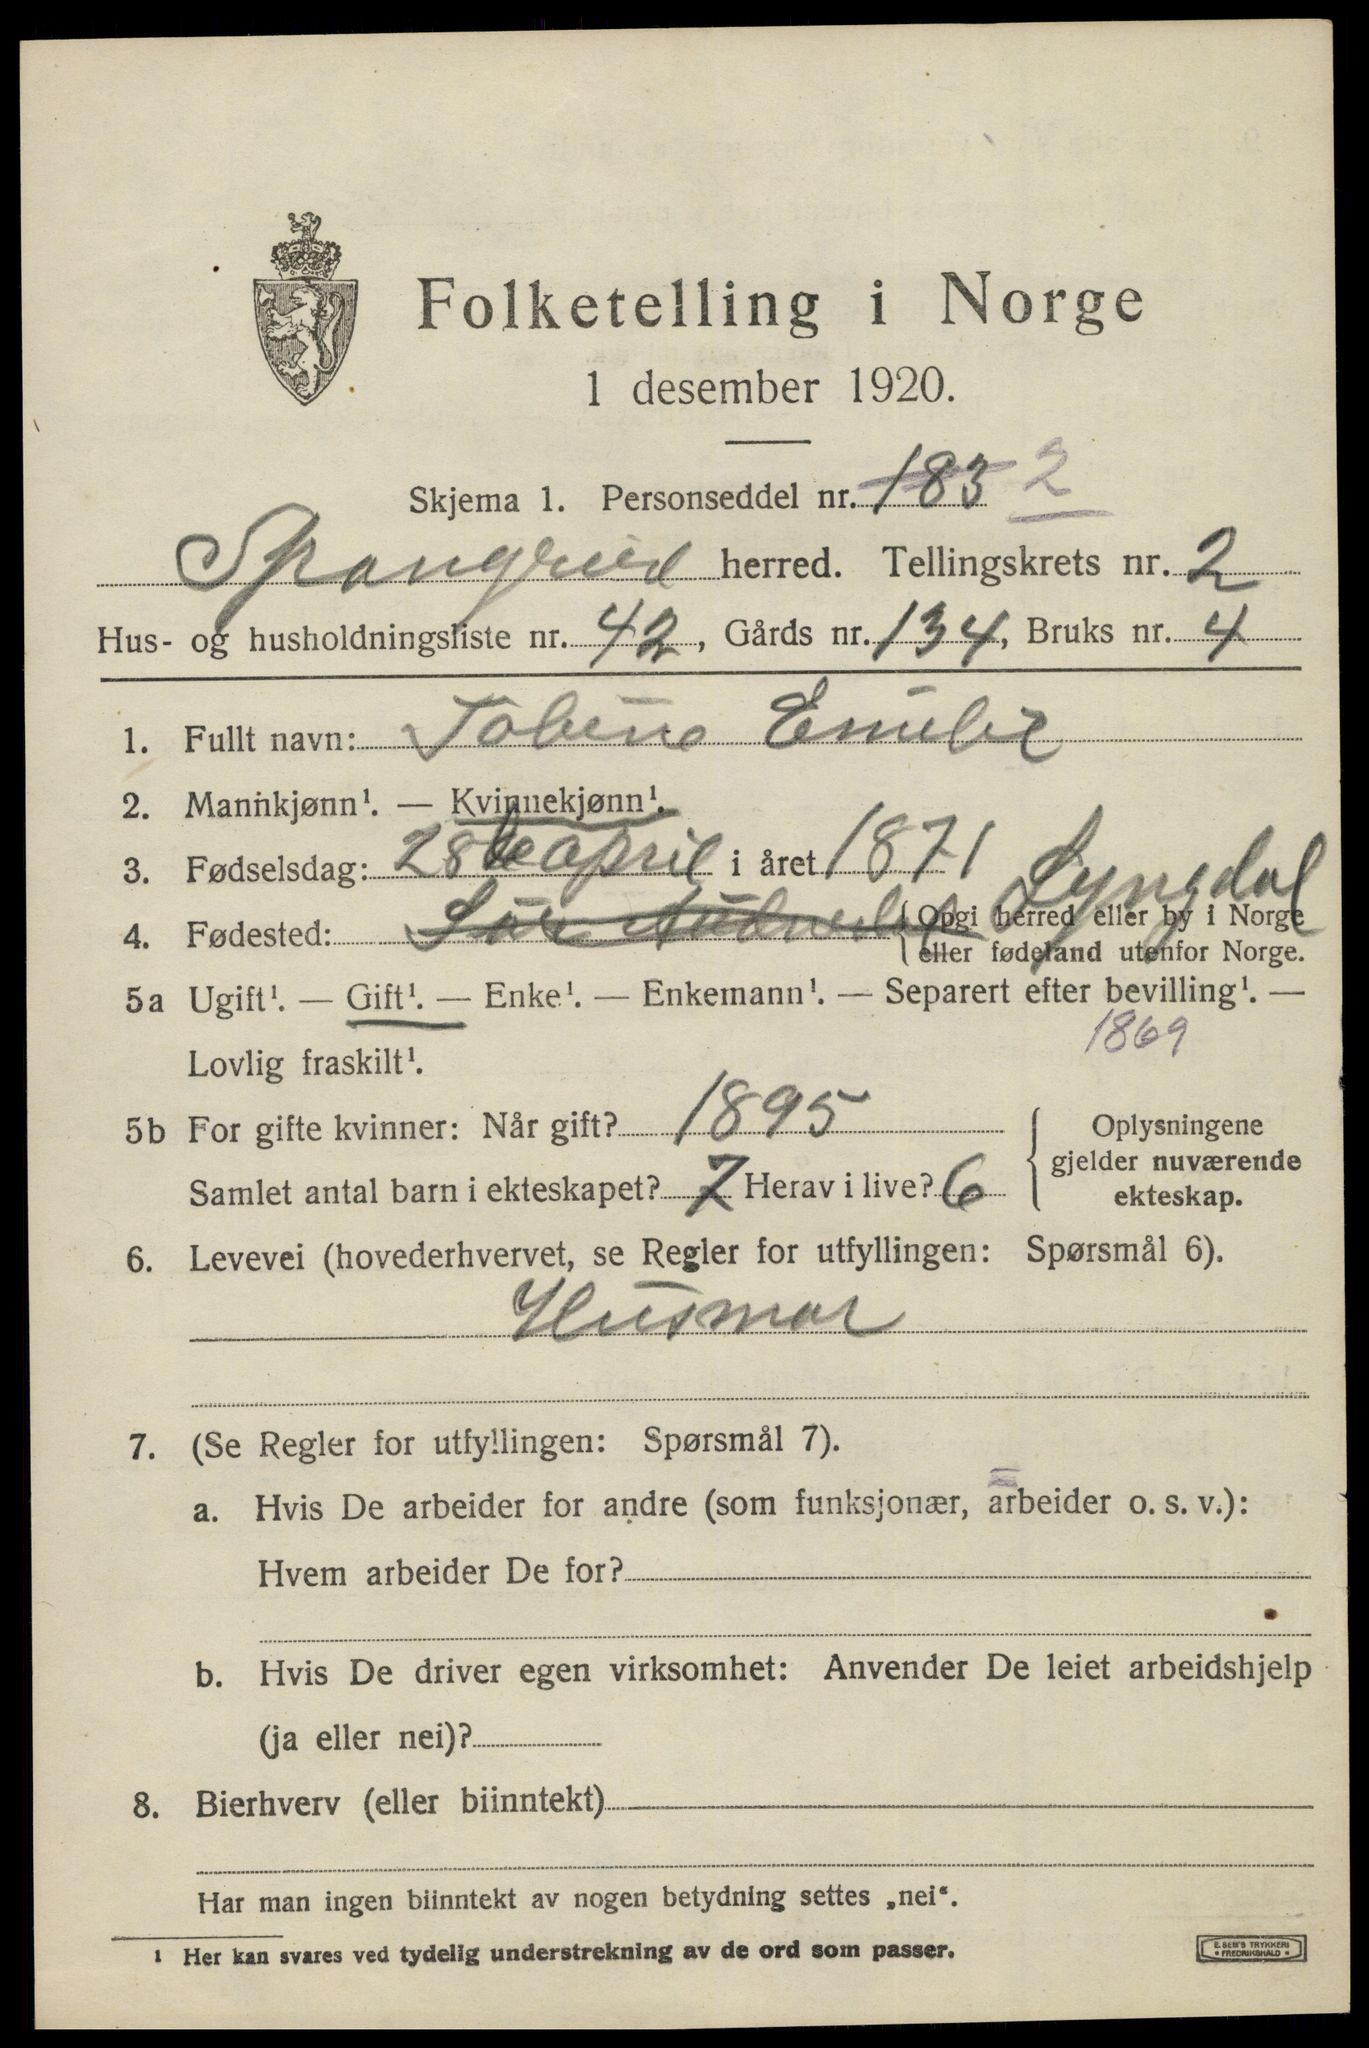 Folketelling i Norge
1 desember 1920.
Skjema 1. Personseddel nr. 183 2
Spangreid herred. Tellingskrets nr. 2
Hus- og husholdningsliste nr. 42, Gårds nr. 134, Bruks nr. 4
1. Fullt navn: Tobine Emilie
2. Mannkjønn¹. — Kvinnekjønn¹.
3. Fødselsdag: 28de april i året 1871
4. Fødested: Sør Audnedal Lyngdal
{Opgi herred eller by i Norge
eller fødeland utenfor Norge.
5a Ugift¹. — Gift¹. — Enke¹. — Enkemann¹. — Separert efter bevilling¹. —
1869
Lovlig fraskilt¹.
5b For gifte kvinner: Når gift? 1895
Samlet antal barn i ekteskapet? 7 Herav i live? 6
{Oplysningene
gjelder nuværende
ekteskap.
6. Levevei (hovederhvervet, se Regler for utfyllingen: Spørsmål 6).
Husmor
7. (Se Regler for utfyllingen: Spørsmål 7).
a. Hvis De arbeider for andre (som funksjonær, arbeider o. s. v.):
Hvem arbeider De for?
b. Hvis De driver egen virksomhet: Anvender De leiet arbeidshjelp
(ja eller nei)?
8. Bierhverv (eller biinntekt)
Har man ingen biinntekt av nogen betydning settes „nei“.
¹ Her kan svares ved tydelig understrekning av de ord som passer.
E. SEM'S TRYKKERI
• FREDRIKSHALD •